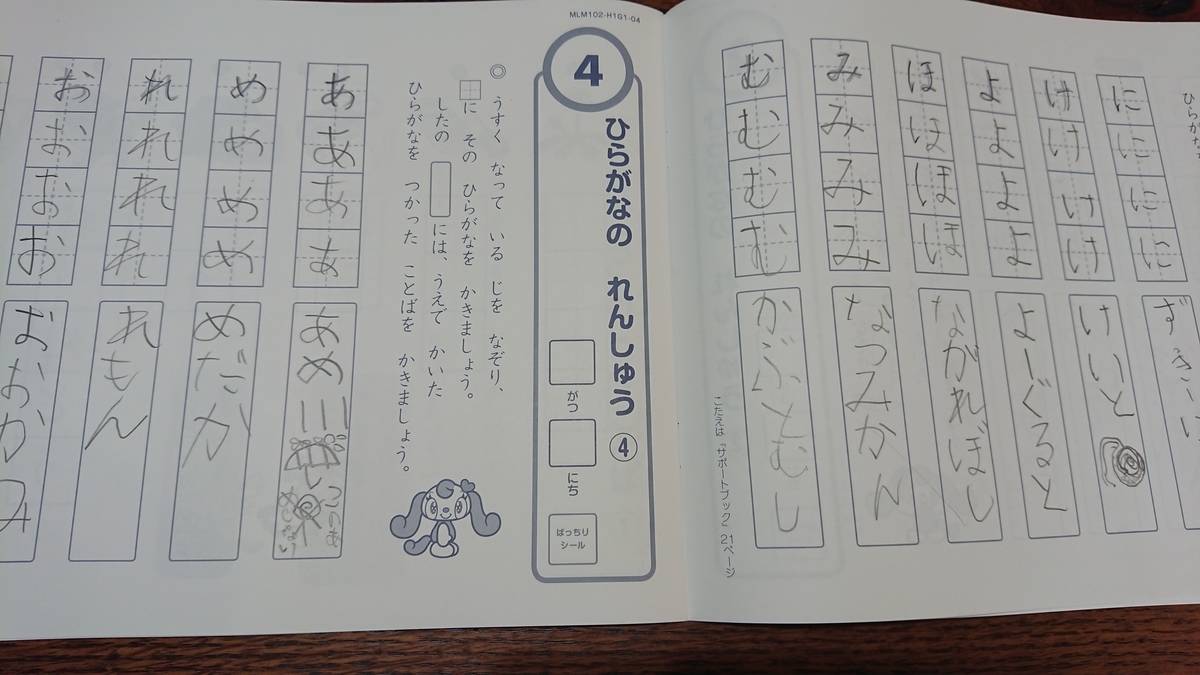 ひらがな
に
に
に
に
け
け
け
け
けいと
よ
よ
よ
よ
よーぐると
ほ
ほ
ほ
ほ
ながれぼし
み
み
み
み
なつみかん
む
む
む
む
かぶとむし
こたえは「サポートブック」21ページ
MLM102-H1G1-04
4
ひらがなの れんしゅう ④
がつ
にち
ばっちり
シール
◎ うすく なって いる じを なぞり、
に その ひらがなを かきましょう。
したの には、うえで かいた
ひらがなを つかった ことばを かきましょう。
あ
あ
あ
あ
あめ
め
め
め
め
めだか
れ
れ
れ
れ
れもん
お
お
お
お
おおかみ